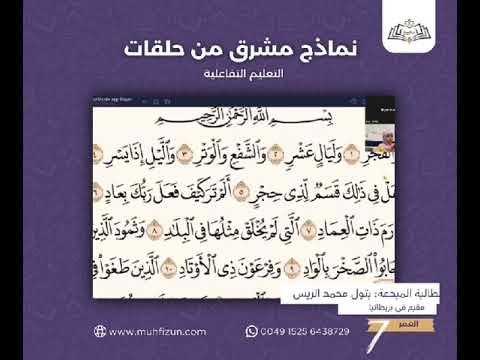 نماذج مشرق من حلقات
التعليم التفاعلية
بِسْمِ اللَّهِ الرَّحْمَٰنِ الرَّحِيمِ
الْفَجْرِ ١ وَلَيَالٍ عَشْرٍ ٢ وَالشَّفْعِ وَالْوَتْرِ ٣ وَاللَّيْلِ إِذَا يَسْرِ ٤
هَلْ فِي ذَٰلِكَ قَسَمٌ لِّذِي حِجْرٍ ٥ أَلَمْ تَرَ كَيْفَ فَعَلَ رَبُّكَ بِعَادٍ ٦
رَمَ ذَاتِ الْعِمَادِ ٧ الَّتِي لَمْ يُخْلَقْ مِثْلُهَا فِي الْبِلَٰدِ ٨ وَثَمُودَ الَّذِينَ
جَابُوا الصَّخْرَ بِالْوَادِ ٩ وَفِرْعَوْنَ ذِي الْأَوْتَادِ ١٠ الَّذِينَ طَغَوْا فِي
طالبة المبدعة: بتول محمد الريس
مقيم في بريطانيا
العمر 7
www.muhfizun.com 0049 1525 6438729